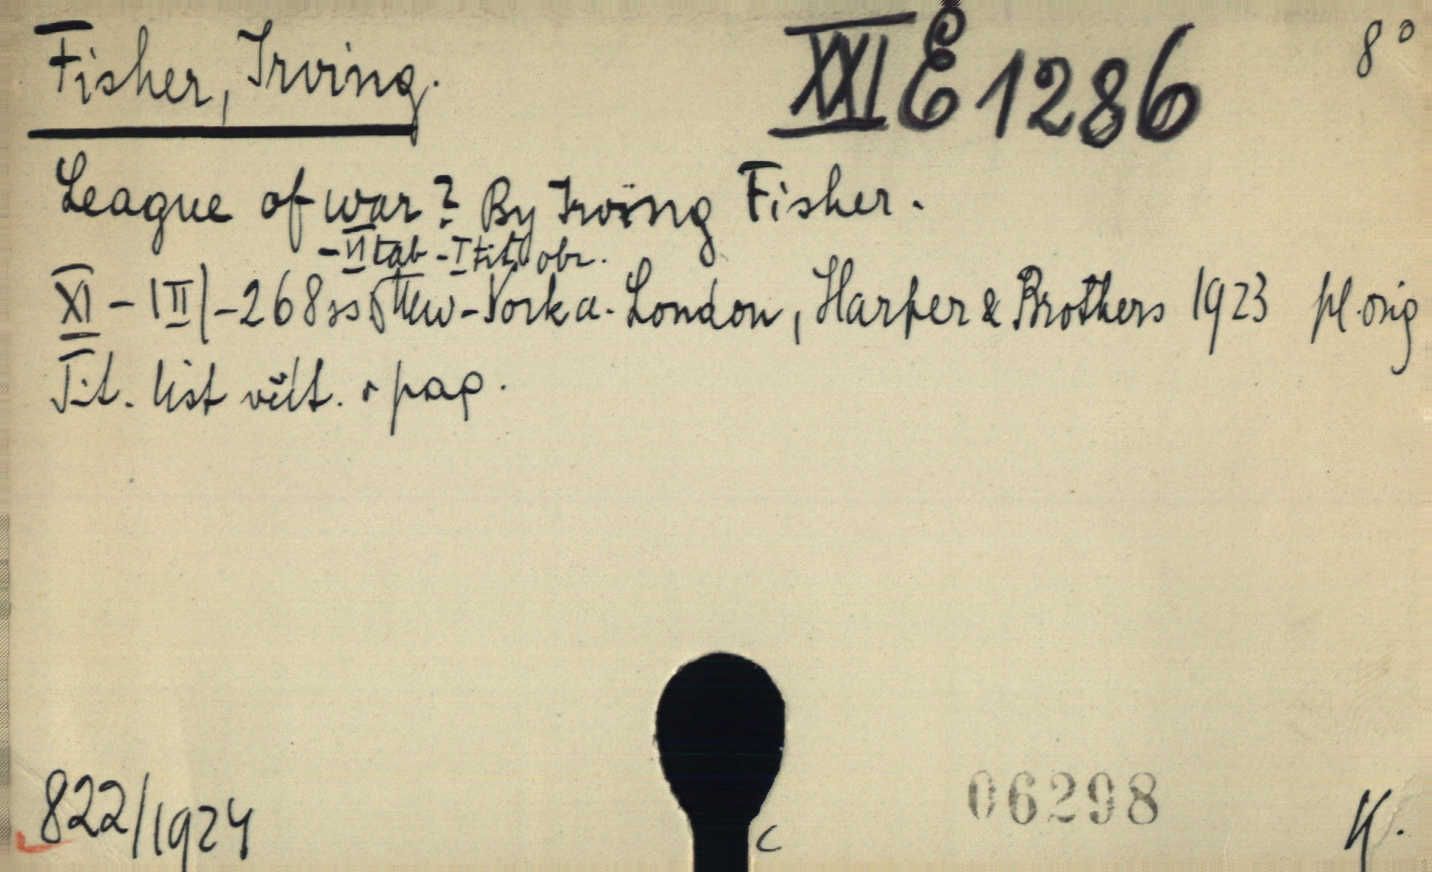 Fisher, Irving. XXI E 1286 8°
League of war? By Irving Fisher.
- VI tab - I tit. obr.
XI - |II| - 268 ss New-York a. London, Harper & Brothers 1923 pl. orig
Tit. list včít. v pag.
822/1924
06298
C
K.